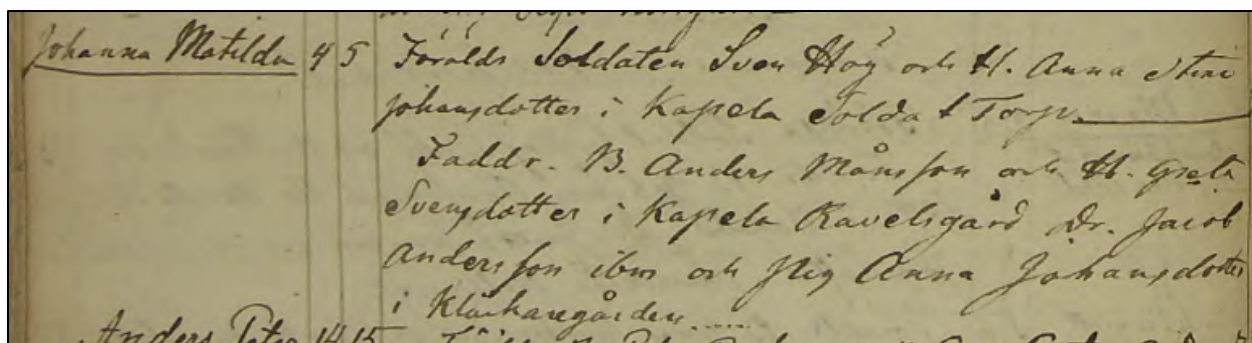 Johanna Matilda 4 5 Föräldr Soldaten Sven Höy och H. Anna Stina
Johansdotter i Kapela Soldat Torp.
Faddr. B. Anders Månsson och H. Greta
Svensdotter i Kapela Ravelsgård Dr. Jacob
Andersson ibm och Pig Anna Johansdotter
i Klåckaregården
Anders Peter 14 15